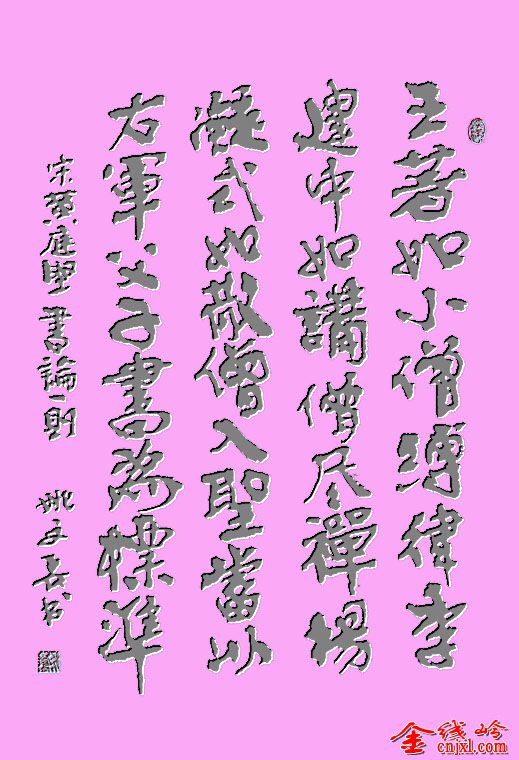 王著如小僧缚律李
建中如講僧尽禪楊
凝式如散僧入聖當以
右軍父子書為標準
宋黄庭堅書論一則
姚文長书
金线岭
cnjxl.com